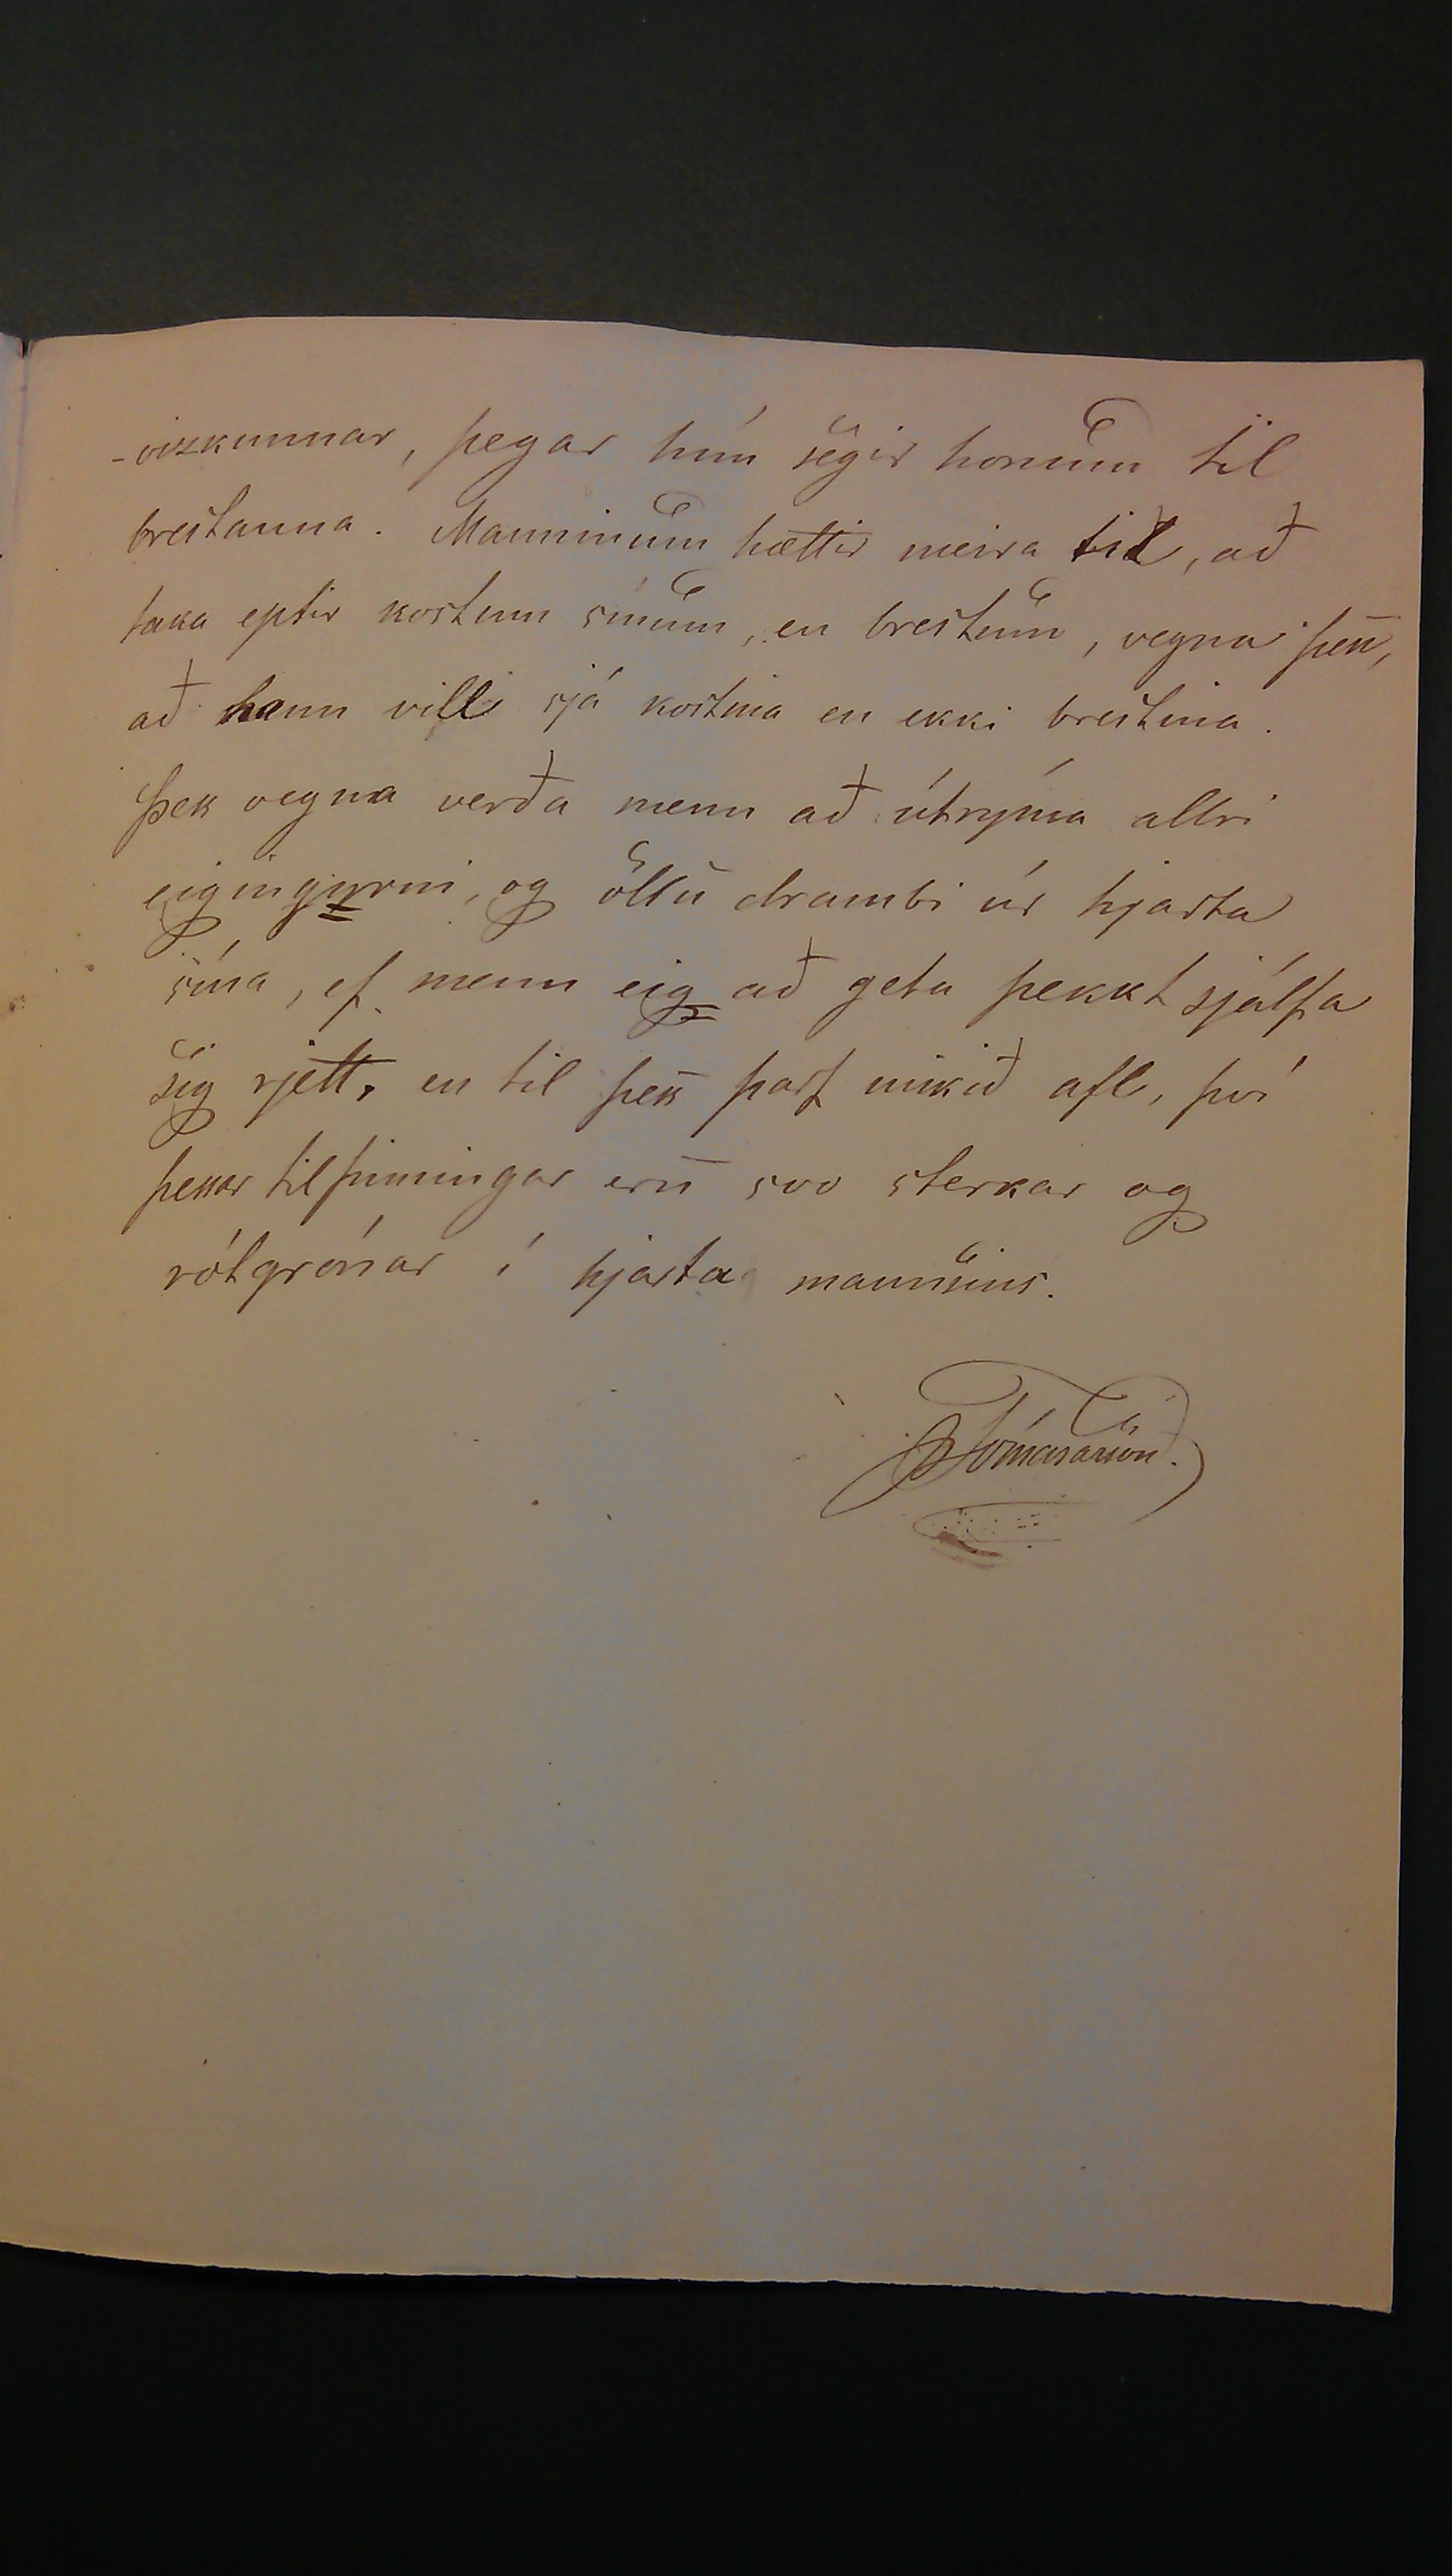 -vizkunnar, þegar hún segir honum til
brestanna. Manninum hættir meira til, að
taka eptir kostum sínum, en brestum, vegna þess,
að hann vill sjá kostina en ekki brestina.
Þess vegna verða menn að útrýma allri
eigingyrni, og öllu drambi úr hjarta
sína, ef menn eig að geta þekkt sjálfa
sig rjett, en til þess þarf mikið afl, því
þessar tilfinningar eru svo sterkar og
rótgrónar í hjarta mannsins.
Tómasarson.